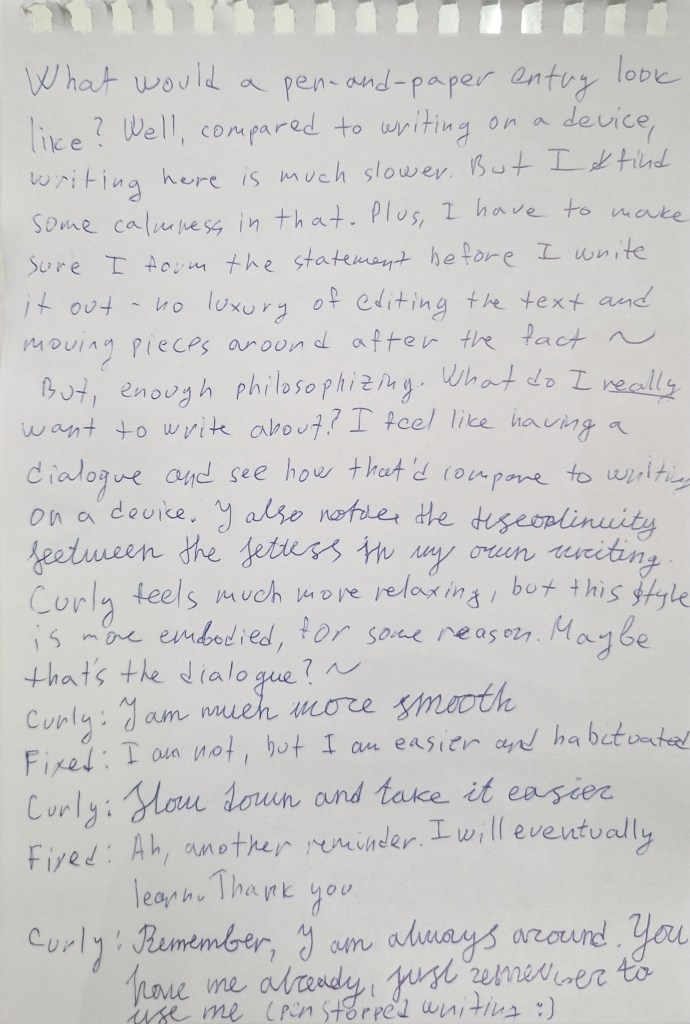 What would a pen-and-paper entry look
like? Well, compared to writing on a device,
writing here is much slower. But I find
some calmness in that. Plus, I have to make
sure I form the statement before I write
it out - no luxury of editing the text and
moving pieces around after the fact ~
But, enough philosophizing. What do I really
want to write about? I feel like having a
dialogue and see how that'd compare to writing
on a device. I also notice the discontinuity
between the letters in my own writing.
Curly feels much more relaxing, but this style
is more embodied, for some reason. Maybe
that's the dialogue? ~
Curly: I am much more smooth
Fixed: I am not, but I am easier and habituated
Curly: Slow down and take it easier
Fixed: Ah, another reminder. I will eventually
learn. Thank you
Curly: Remember, I am always around. You
have me already, just remember to
use me (pen stopped writing :)